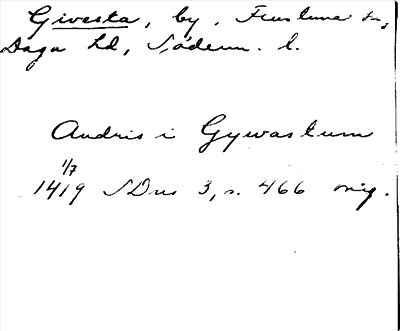 Givesta, by, Frustuna sn,
Daga hd, Söderm. l.
Andris i Gywastum
1/7
1419 SDns 3, s. 466 orig.